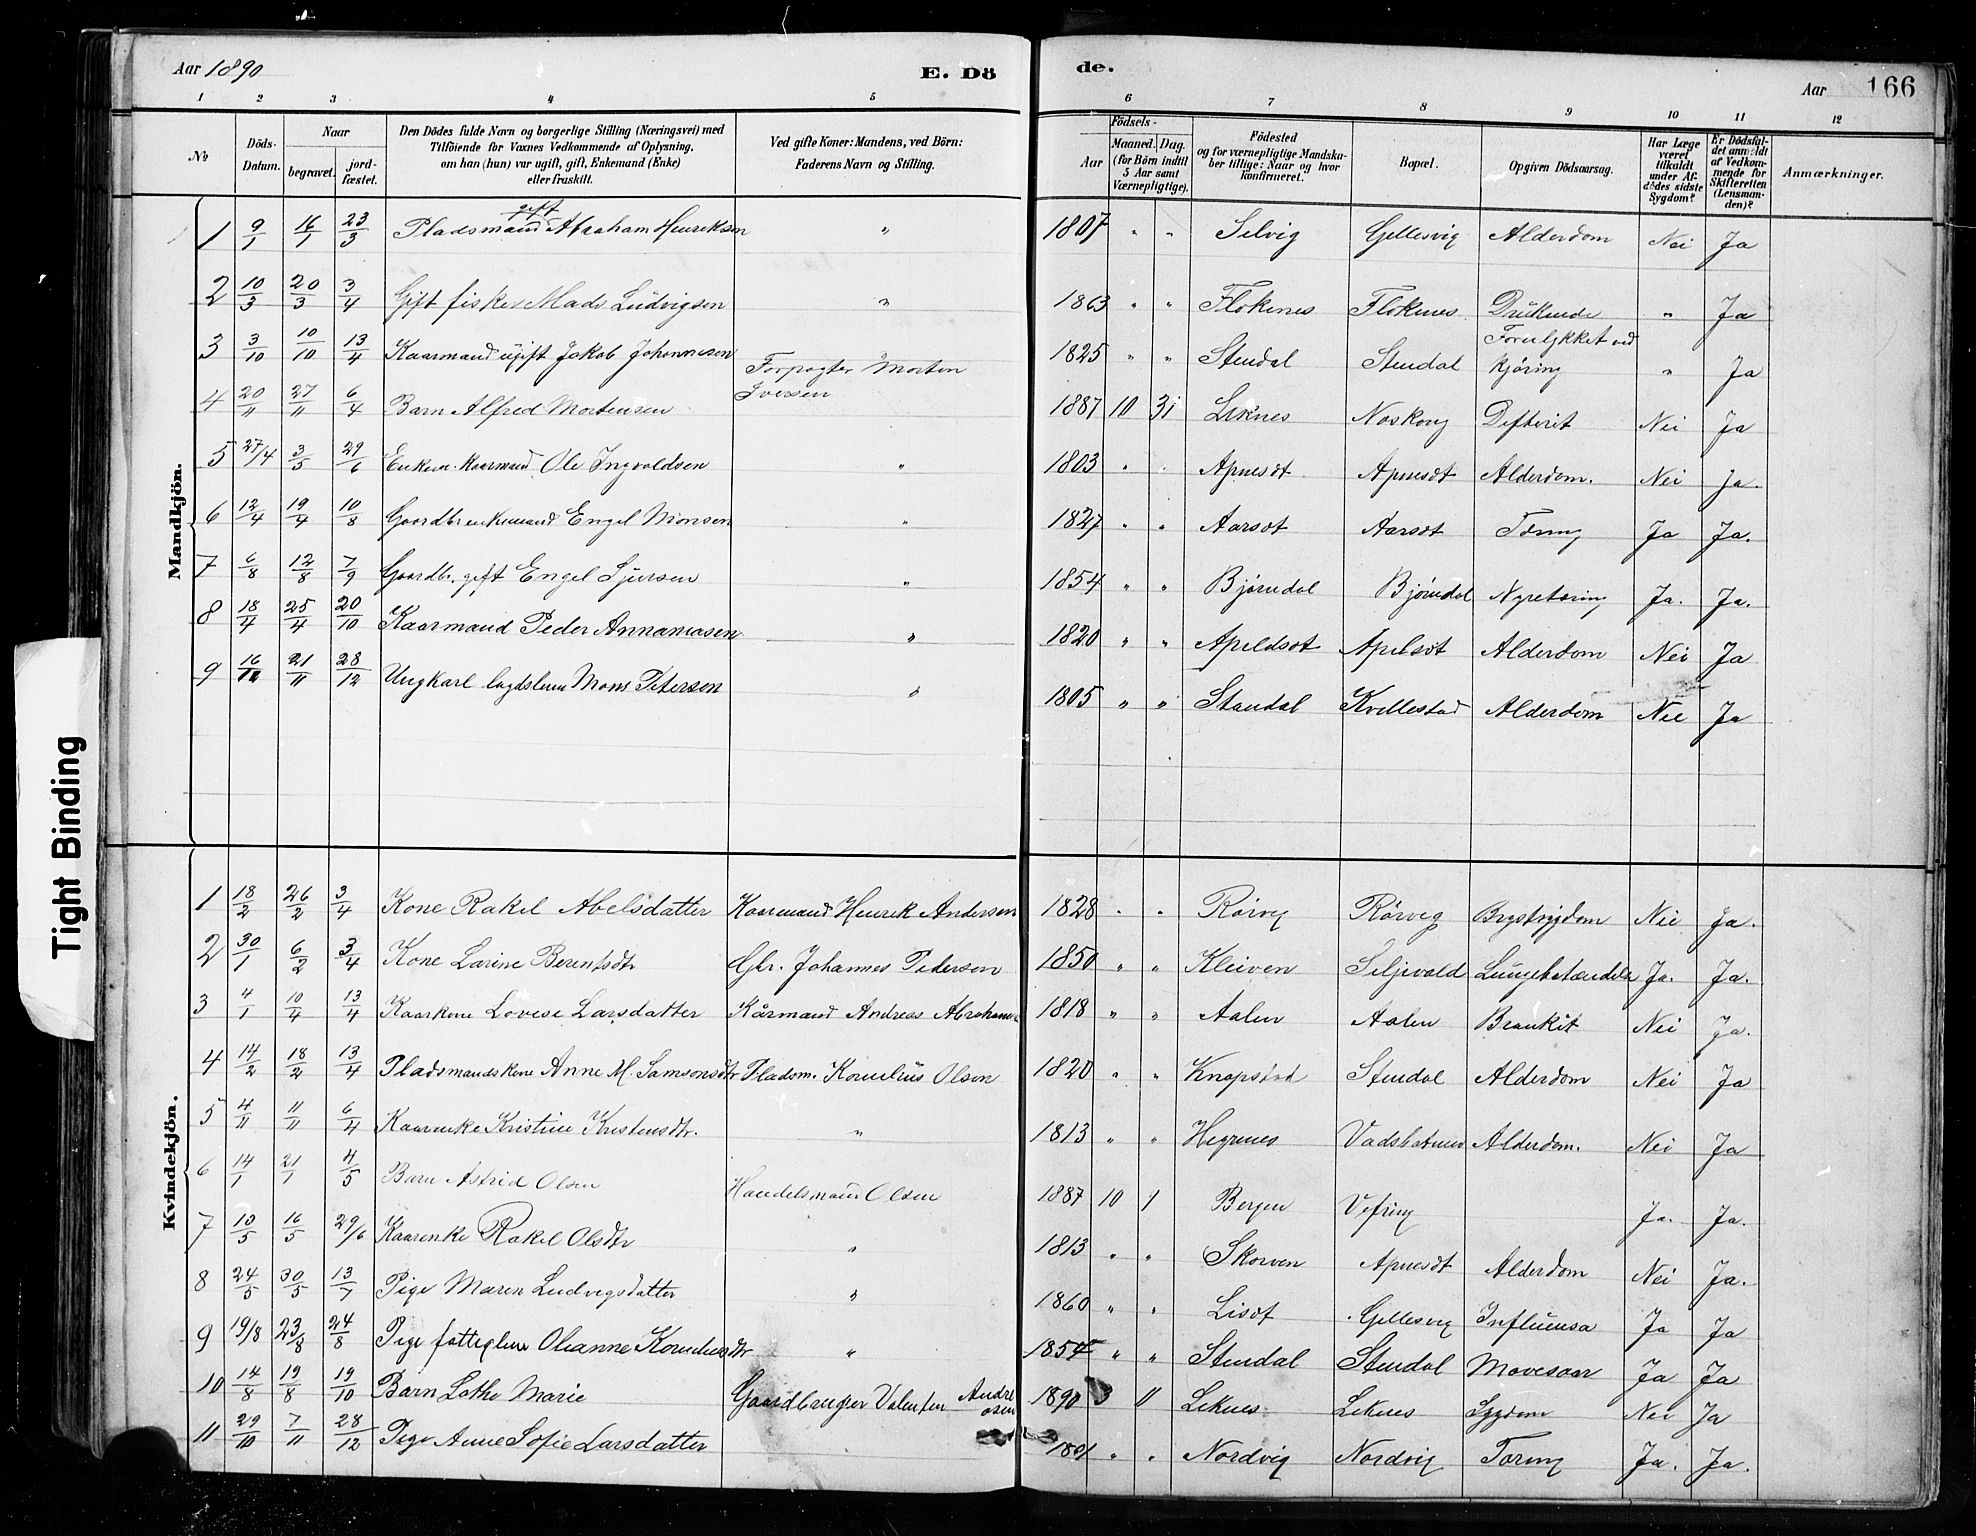 Aar 1890 E. Dö de. Aar 166
1 2 3 4 5 6 7 8 9 10 11 12
No Döds-Datum. Naar begravet. jord-fæstet. Den Dödes fulde Navn og borgerlige Stilling (Næringsvei) med Tilföiende for Voxnes Vedkommende af Oplysning, om han (hun) var ugift, gift, Enkemand (Enke) eller fraskilt. Ved gifte Koner: Mandens, ved Börn: Faderens Navn og Stilling. Födsels- Aar Maaned. Dag. (for Börn indtil 5 Aar samt Værnepligtige). Födested og for værnepligtige Mandska-ber tillige: Naar og hvor konfirmeret. Bopæl. Opgiven Dödsaarsag. Har Læge været tilkaldt under Af-dödes sidste Sygdom? Er Dödsfal-det anmeldt af Vedkom-mende for Skifteretten (Lensman-den)? Anmærkninger.
Mandkjön.
1 9/1 16/1 23/3 Pladsmand gift Abraham Henriksen " 1807 " " Selvig Gellesvig Alderdom Nei Ja
2 10/3 20/3 3/4 Gift fisker Mads Ludvigsen " 1863 " " Flokenes Flokenes Drukende " Ja
3 3/10 10/10 13/4 Kaarmand ugift Jakob Johannesen " 1825 " " Stendal Stendal Forulykket ved Kjøring " Ja
4 20/11 27/11 6/4 Barn Alfred Mortensen Forpagter Morten Iversen 1887 10 31 Leknes Noskong Defterit Nei Ja
5 27/4 3/5 29/6 Enkem. Kaarmand Ole Ingvoldsen " 1803 " " Apnesöt Apnesöt Alderdom. Nei Ja.
6 12/4 19/4 10/8 Gaardbr enkemand Engel Monsen " 1827 " " Aarsöt Aarsöt Tæring Ja Ja.
7 6/8 12/8 7/9 Gaardbr. gift Engel Sjursen " 1854 " " Bjørndal Bjørndal Nyretæring Ja. Ja.
8 18/4 25/4 20/10 Kaarmand Peder Annaniasen " 1820 " " Apeldsöt Apelsöt Alderdom Nei Ja
9 16/11 21/11 28/12 Ungkarl lægdslem Mons Petersen " 1805 " " Standal Kvellestad Alderdom Nei Ja
Kvindekjön.
1 18/2 26/2 3/4 Kone Rakel Abelsdatter Kaarmand Henrik Andersen 1828 " " Rörvig Rörvig Brystsygdom Nei Ja.
2 30/1 6/2 3/4 Kone Larine Berentsdtr Gbr. Johannes Pedersen 1850 " " Kleiven Seljevold Lungebetændelse Ja. Ja.
3 4/1 10/4 13/4 Kaarkone Lovise Larsdatter Kårmand Andreas Abrahams 1818 " " Aalen Aalen Bronkit Nei Ja.
4 14/2 18/2 13/4 Pladsmandskone Anne M. Samsonsdtr Pladsm. Kornelius Olsen 1820 " " Knapstad Stendal Alderdom Nei Ja
5 4/11 11/11 6/4 Kaarenke Kristine Kristensdtr. " 1813 " " Hegrenes Vadsbotnen Alderdom. Nei Ja
6 14/1 21/1 4/5 Barn Astrid Olsen Handelsmand Olsen 1887 10 1 Bergen Vefring Ja. Ja.
7 10/5 16/5 29/6 Kaarenke Rakel Olsdtr " 1813 " " Skorven Apnesöt Alderdom Nei Ja.
8 24/5 30/5 13/7 Pige Maren Ludvigsdatter " 1860 " " Lisöt Gellesvig Influensa Ja Ja
9 19/8 23/8 24/8 Pige fatteglem Oleanne Korneliusdtr " 1854 " " Stendal Stendal Mavesaar Ja Ja
10 14/8 19/8 19/10 Barn Lathe Marie Gaardbruger Valentin Andreasen 1890 3 11 Leknes Leknes Sygdom Nei Ja
11 29/10 7/11 28/12 Pige Anne Sofie Larsdatter 1801 " " Nordvig Nordvig Tæring Ja. Ja.
Tight Binding